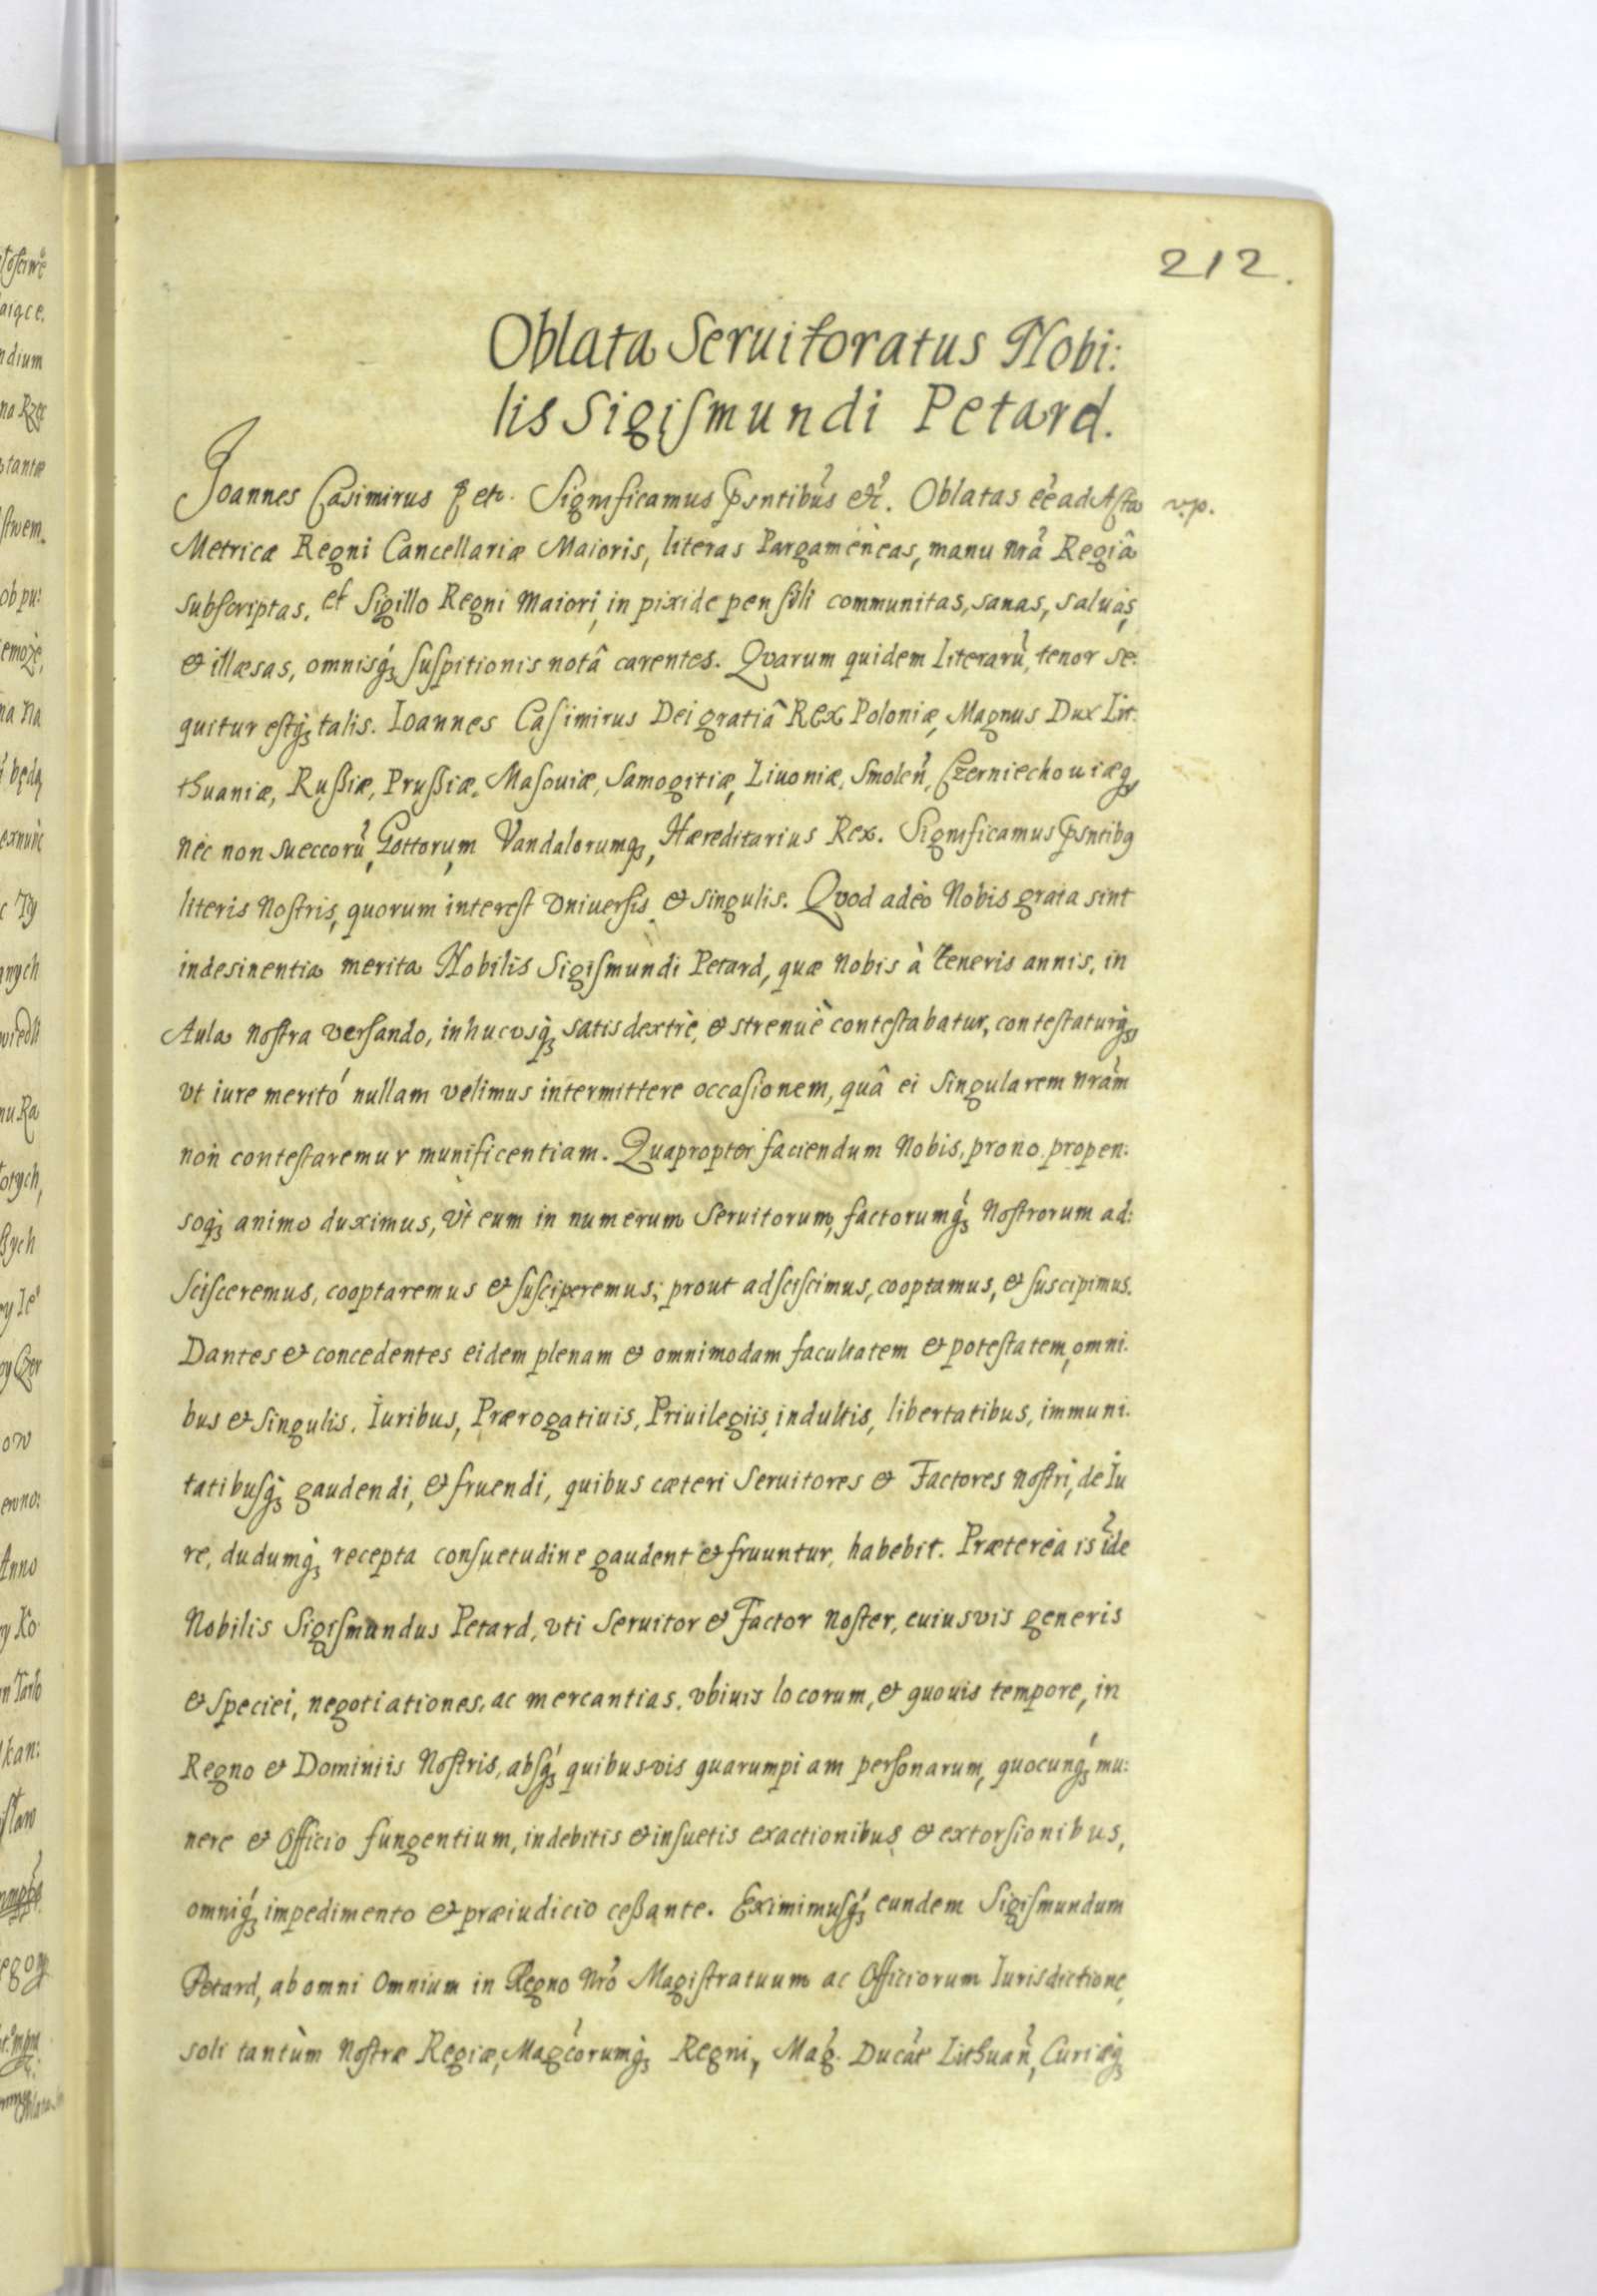 212.
Oblata Seruitoratus Nobi:
lis Sigismundi Petard.
Joannes Casimirus etc. Significamus psntibus etc. Oblatas eẽ ad Acta v.p.
Metricæ Regni Cancellariæ Maioris, literas Pargameneas, manu nrã Regiâ
subscriptas, et Sigillo Regni maiori, in pixide pensili communitas, sanas, saluas,
& illæsas, omnisq; suspitionis notâ carentes. Qvarum quidem Literarũ, tenor se:
quitur estq; talis. Ioannes Casimirus Dei gratiâ Rex Poloniæ, Magnus Dux Lit:
thuaniæ, Rußiæ, Prußiæ, Masouiæ, Samogitiæ, Liuoniæ, Smoleñ, Czerniechouiæq,
nec non Sueccorũ, Gottorum Vandalorumq, Hæreditarius Rex. Significamus psntibq
literis Nostris, quorum interest vniuersis & singulis. Qvod adeò Nobis grata sint
indesinentia merita Nobilis Sigismundi Petard, quæ nobis à teneris annis, in
Aula nostra versando, inhucvsq; satis dextrè, & strenuè contestabatur, contestaturq;,
vt iure meritó nullam velimus intermittere occasionem, quâ ei singularem nrãm
non contestaremur munificentiam. Quapropter faciendum Nobis, prono propen:
soq; animo duximus, vt eum in numerum Seruitorum, factorumq; Nostrorum ad:
scisceremus, cooptaremus & susciperemus; prout adsciscimus, cooptamus, & suscipimus.
Dantes & concedentes eidem plenam & omnimodam facultatem & potestatem, omni:
bus & singulis. Iuribus, Prærogatiuis, Priuilegiis, indultis, libertatibus, immuni:
tatibusq; gaudendi, & fruendi, quibus cæteri Seruitores & Factores nostri, de Iu
re, dudumq; recepta consuetudine gaudent & fruuntur, habebit. Præterea is ide
Nobilis Sigismundus Petard, vti Seruitor & Factor noster, cuiusvis generis
& speciei, negotiationes, ac mercantias, vbiuis locorum, & quouis tempore, in
Regno & Dominiis Nostris, absq; quibusvis quarumpiam personarum, quocunq; mu:
nere & Officio fungentium, indebitis & insuetis exactionibus & extorsionibus,
omniq; impedimento & præiudicio ceßante. Eximimusq; eundem Sigismundum
Petard, ab omni Omnium in Regno Nrõ Magistratuum ac Officiorum Iurisdictione,
soli tantùm Nostræ Regiæ, Magcorumq; Regni, Mag. Ducat Lithuañ, Curiæq;